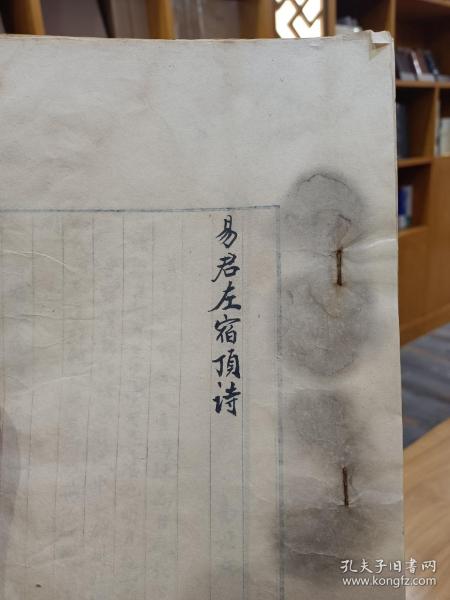 易君左宿頂诗
孔夫子旧书网
www.kongfz.com